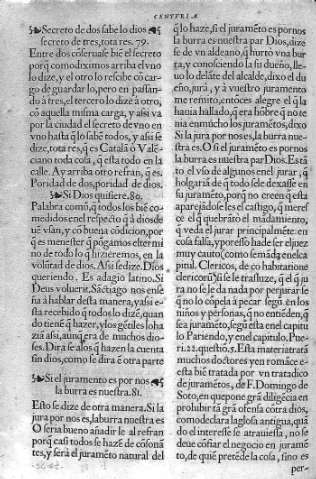 CENTVRIA
Secreto de dos sabe lo dios
secreto de tres, tota res. 79.
Entre dos cõseruase biẽ el secreto
porq̃ comodiximos arriba el vno
lo dize, y el otro lo recibe cõ car-
go de guardar lo, pero en passan-
do à tres, el tercero lo dize à otro,
cõ aquella misma carga, y assi va
por la ciudad el secreto de vno en
vno hasta q̃ lo sabẽ todos, y assi se
dize, tota res, q̃ es Catalã ò Valẽ-
ciano toda cosa, q̃ esta todo en la
calle. Ay arriba otro refran, q̃ es.
Poridad de dos, poridad de dios.
Si Dios quisiere. 80.
Palabra comũ, q̃ todos los biẽ co-
medidos enel respecto q̃ à dios de
uẽ vsan, y cõ buena cõdicion, por
q̃ es menester q̃ pógamos el termi
no de todo lo q̃ hizieremos, en la
volũtad de dios. Assi se dize. Dios
queriendo. Es adagio latino. Si
Deus voluerit. Sãctiago nos ense
ña à hablar desta manera, ya si e-
sta recebido q̃ todos lo dizẽ, quan
do tienẽ q̃ hazer, y los gẽtiles lo ha
zia assi, aunq̃ era de muchos dio-
ses. Dira se alos q̃ hazen la cuenta
sin dios, como se dira ẽ otra parte
Si el juramento es por nos
la burra es nuestra. 81.
Esto se dize de otra manera. Si la
jura por nos es, la burra nuestra es
O seria bueno añadir le al refran
porq̃ casi todos se hazẽ de cõsonã
tes, y sera el juramẽto natural del
q̃ lo haze, si el juramẽto es por nos
la burra es nuestra par Dios, dize
se de vn aldeano, q̃ hurtò vna bur
ra, y conosciendo la su dueño, lle-
uo lo delãte del alcalde, dixo el du
eño, jurà, y à vuestro juramento
me remito, entõces alegre el q̃ la
hauia hallado, q̃ era hõbre q̃ no te
nia en mucho los juramẽtos, dixo
Si la jurà por noses, la burra nue-
stra es. O si el juramẽto es por nos
la burra es nuestra par Dios. Està
to el vso de algunos enel jurar, q̃
holgarià de q̃ todo se le dexasse en
su juramẽto, porq̃ no creen q̃ esta
aparejado le es el castigo, q̃ mere
ce el q̃ quebrãto el mãdamiento,
q̃ veda el jurar principalmẽte: en
cosa falsa, y por esso ha de ser el juez
muy cauto (como se mãda enel ca
pitul. Clericos, de cohabitatione
clericorũ) si se le trasluze, q̃ el q̃ ju
ra no se le da nada por perjurar se
q̃ no lo cõpela à pecar segũ en los
niños y personas, q̃ no entiẽden, q̃
sea juramẽto, segũ esta enel capitu
lo Pariendo, y enel capitulo, Pue-
ri. 22. questiõ. 5. Esta materia tratà
muchos doctores y en romãce e-
sta biẽ tratada por vn tratadico
de juramẽtos, de F. Domingo de
Soto, en que pone grã diligẽcia en
prohibir tã grã ofensa cõtra dios,
como declara la glosa antigua, quã
do el interesse se atrauiessa, no se
deue cõfiar el negocio en juramẽ
to, de quiẽ pretẽde la cosa, sino es
per-